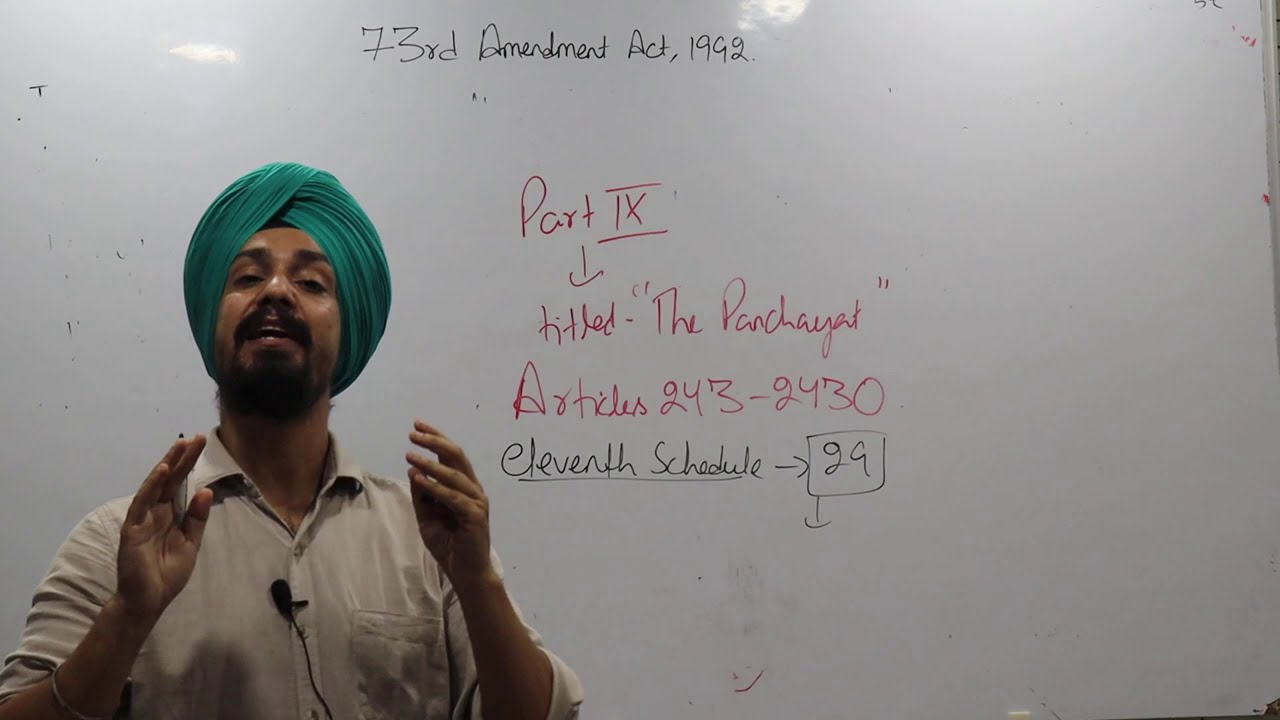 73rd Amendment Act, 1992.
Part IX
titled - "The Panchayat"
Articles 243 - 243O
Eleventh Schedule → 29